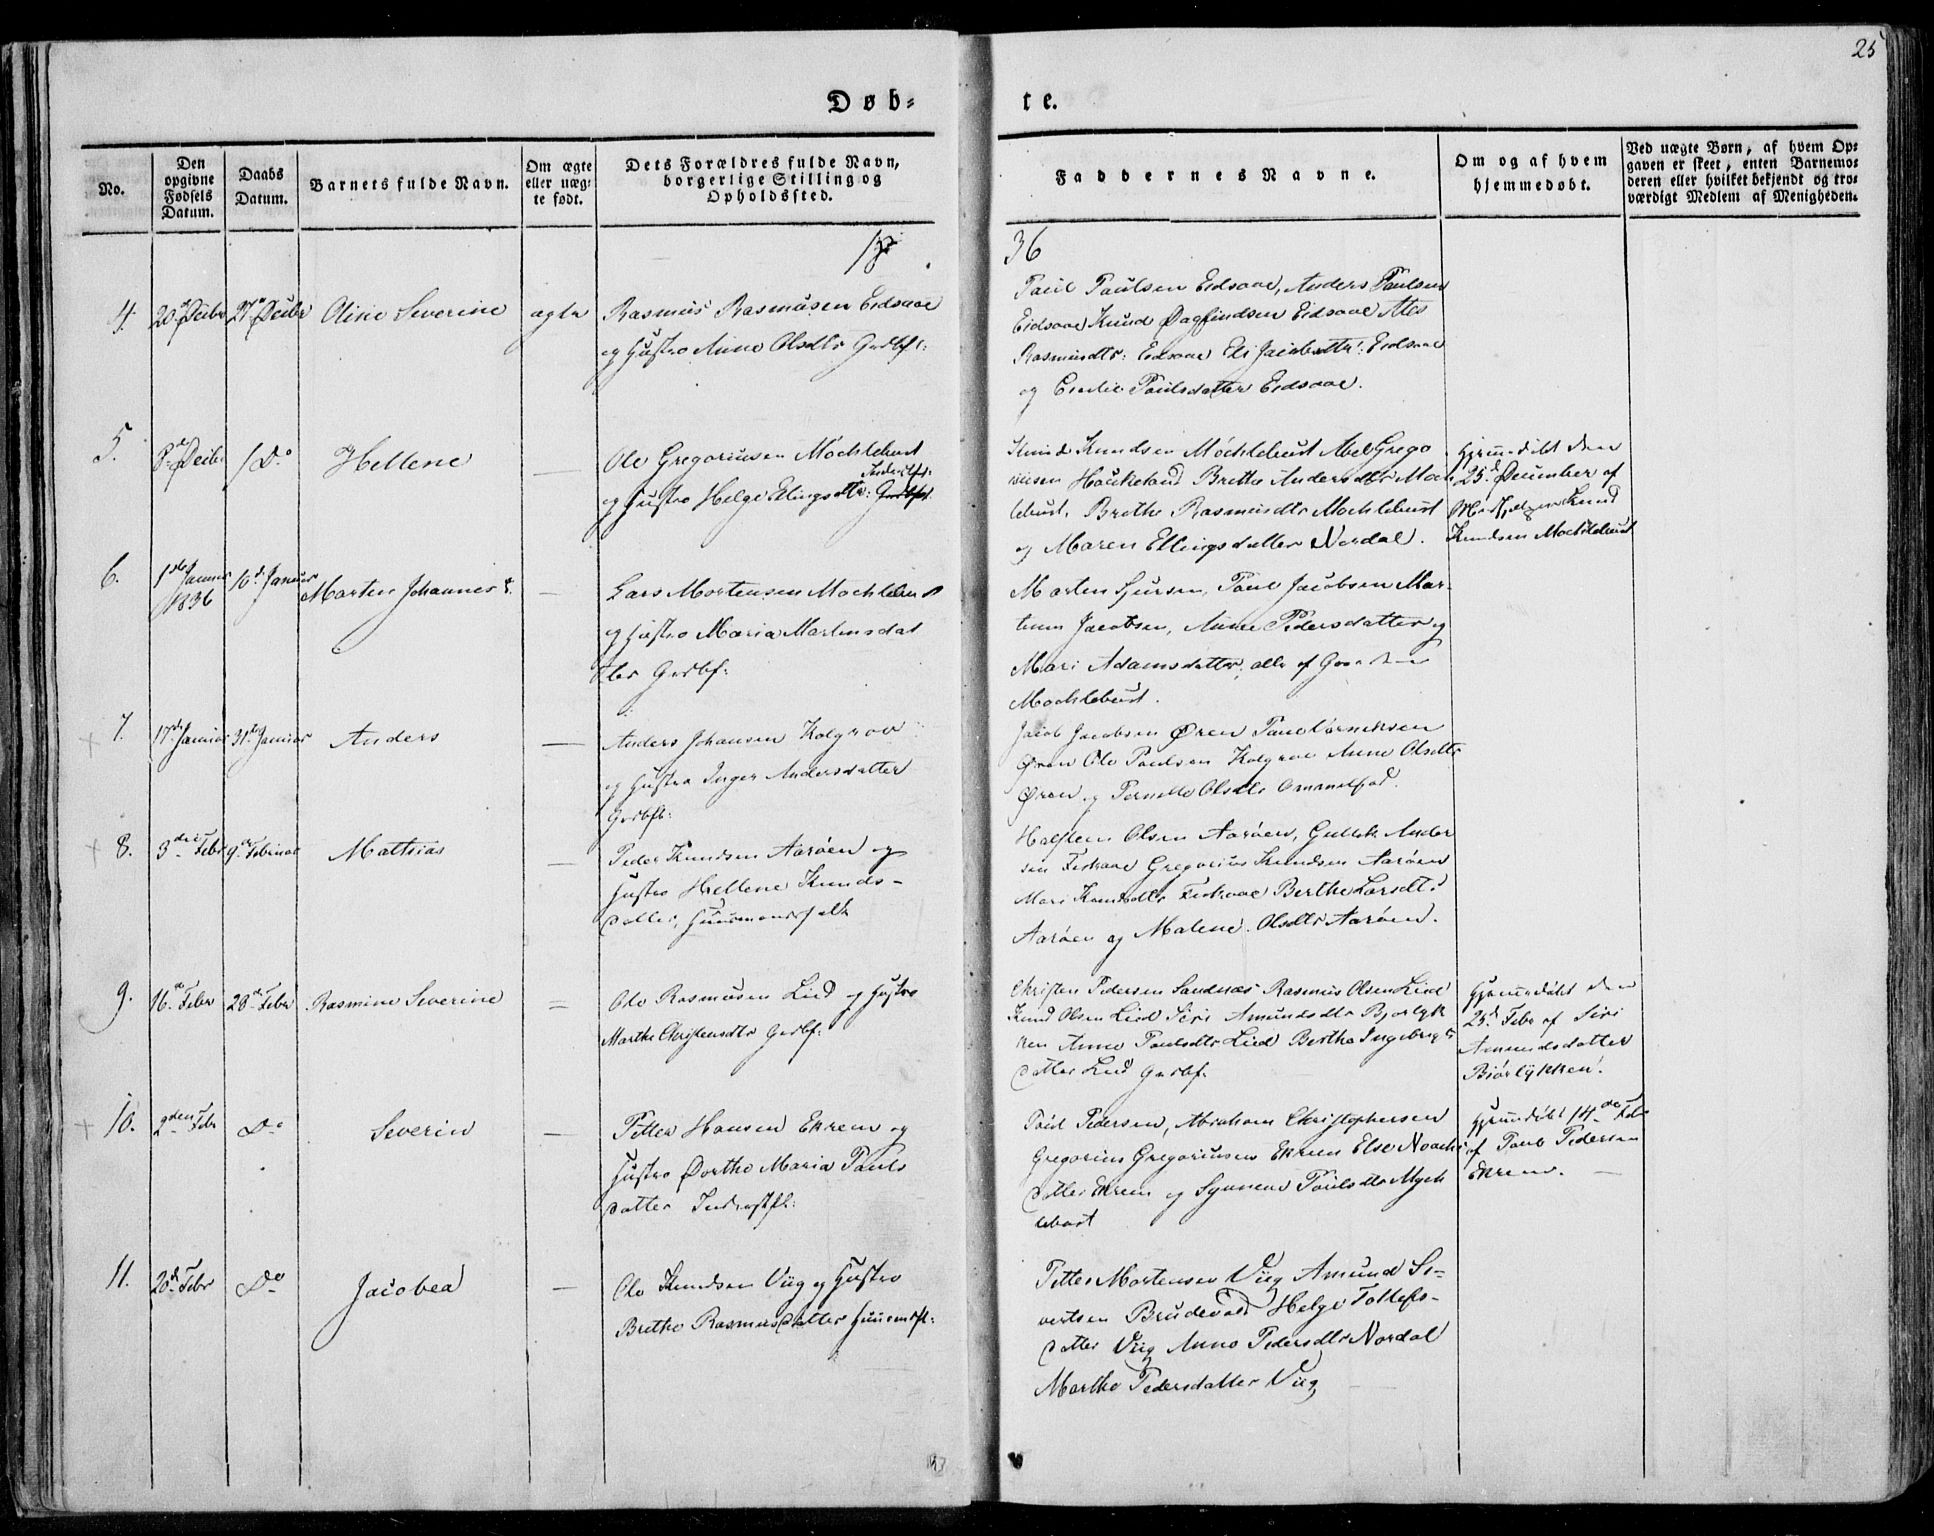 25
Døb-
te.
No.
Den
opgivne
Fødsels
Datum.
Daabs
Datum.
Barnets fulde Navn.
Om ægte
eller uæg-
te født.
Dets Forældres fulde Navn,
borgerlige Stilling og
Opholdssted.
Faddernes Navne.
Om og af hvem
hjemmedøbt.
Ved uægte Børn, af hvem Op-
gaven er skeet, enten Barnemo-
deren eller hvilket bekjendt og tro-
værdigt Medlem af Menigheden.
18
36
4. 20de Decbr 27de Decbr Oline Severine ægte Rasmus Rasmusen Eidsaae
og Hustro Anne Olsdtr Grdbf:
Paul Paulsen Eidsaae, Anders Paulsen
Eidsaae Knud Dagfindsen Eidsaae
Rasmusdtr: Eidsaae Eli Jacobsdtr: Eidsaae
og Paulsdatter Eidsaae.
5. 8de Decbr Do Hellene — Ole Gregoriusen Mochlebust
Inderstf:
og Hustro Helge Elingsdtr: Grdbf:
Knud Knudsen Mochlebust Abel Grego
riusen Haukeland Brethe Andersdtr Moch
lebust, Brethe Rasmusdtr Mochlebust
og Maren Ellingsdatter Nordal.
Hjemmedøbt den
25de December af
Knud
Knudsen Mochlebust
6. 1de Januar
1836
10de Januar Morten Johannes — Lars Mortensen Mochlebust
og Hustro Maria Martensdat
ter Grdbf:
Morten Sjursen, Paul Jacobsen Mar-
tinus Jacobsen, Anne Pedersdatter og
Mari Adamsdatter, alle af Gaarden
Mochlebust.
7. 17de Januar 31te Januar Anders — Anders Johansen Kolgrov
og Hustro Inger Andersdatter
Grdbf:
Jacob Jacobsen Øren Paul
Øren Ole Paulsen Kolgrov Anne Olsdtr
Øren og Pernelle Olsdtr
8. 3die Febr 9de Februar Mathias — Peder Knudsen Aarøen og
Hustro Hellene Knuds-
datter, Huusmandsfolk
Halsteen Olsen Aarøen, Gullik Ander
sen Gregorius Knudsen Aarøen
Mari Knudsdtr Berthe Larsdtr
Aarøen og Malene Olsdtr Aarøen.
9. 16de Febr 28de Febr Rasmine Severine = Ole Rasmusen Lied og Hustro
Marthe Christensdtr Grdbf:
Christen Pedersen Sandnæs Rasmus Olsen Lied
Knud Olsen Lied Siri Amundsdtr Bjørlyk
ken Anne Paulsdtr Lied Berthe Ingebrigts
datter Lied Grdbf.
Hjemmedøbt den
25de Febr af Siri
Amundsdatter
Biørlykken.
10. 2den Febr Do Severin — Petter Hansen Ekrem og
Hustro Dorthe Maria Pauls
datter Inderstfl:
Poul Pedersen, Abraham Christophersen
Gregorius Gregoriusen Ekrem Else Noachs
datter Ekrem og Synneve Paulsdtr Myk
lebost
Hjemmedøbt 14de Feb
af Paul Pedersen
Ekrem. —
11. 20de Febr Do Jacobea — Ole Knudsen Viig og Hustro
Brethe Rasmusdatter Huusmdf:
Petter Mortensen Viig Amund Si-
vertsen Brudevold Helge Tollefs-
datter Viig Anne Pedersdtr Nordal
Marthe Pedersdatter Viig